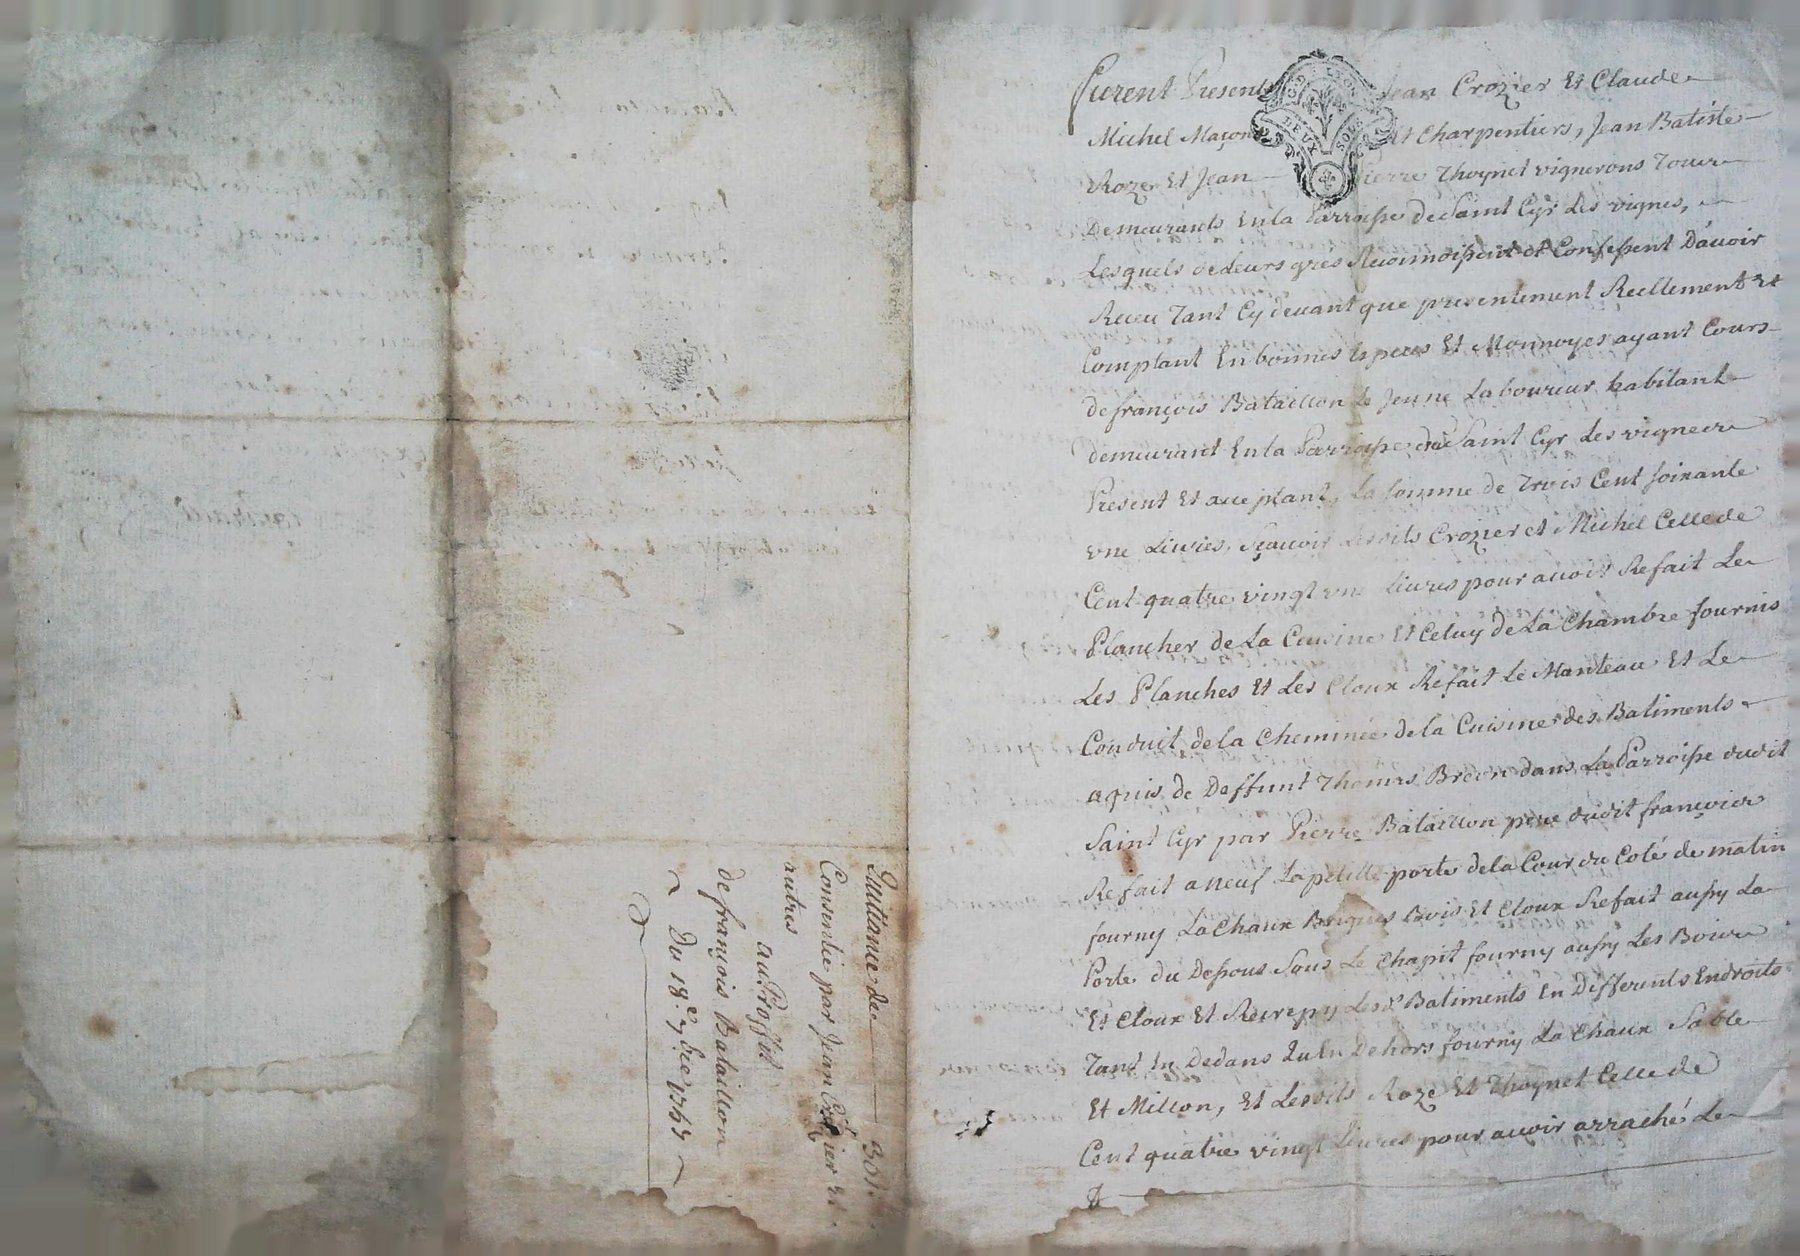 Quittance de 301.
Consentie par Jean Crozier et
autres
au Proffit
de françois Bataillon
Du 18e Xbre 1769
Furent Presents Jean Crozier Et Claude
GD LYON
DEUX SOLS
Michel Maçons Et Charpentiers, Jean Batiste
Roze Et Jean Pierre Thoynet vignerons Tous
Demeurants En la Parroisse de Saint Cyr Les vignes,
Lesquels de Leurs gres Reconnoissent et Confessent D'avoir
Receu Tant Cy devant que presentement Reellement Et
Comptant En bonnes Especes Et Monnoyes ayant Cours
de françois Bataillon Le Jeune Laboureur habitant
demeurant En la Parroisse de Saint Cyr Les vignes
Present Et acceptant, La somme de Trois Cent soixante
une Livres, Sçavoir Lesdits Crozier et Michel Celle de
Cent quatre vingt une Livres pour avoir Refait Le
Plancher de La Cuisine Et Celuy de La Chambre fournis
Les Planches Et Les Cloux Refait Le Manteau Et Le
Conduit de la Cheminée de la Cuisine des Batiments
aquis de Deffunt Thomas Breon dans La Parroisse dudit
Saint Cyr par Pierre Bataillon pere dudit françois
Refait a neuf La petitte porte de la Cour du Coté de matin
fourny La Chaux Briques Bois Et Cloux Refait aussy La
Porte du Dessous Sous Le Chapit fourny aussy Les Bois
Et Cloux Et Recrepy Lesd Batiments En Differents Endroits
Tant En Dedans Qu'En Dehors fourny La Chaux Sable
Et Millon, Et Lesdits Roze Et Thoynet Celle de
Cent quatre vingt Livres pour avoir arraché Le